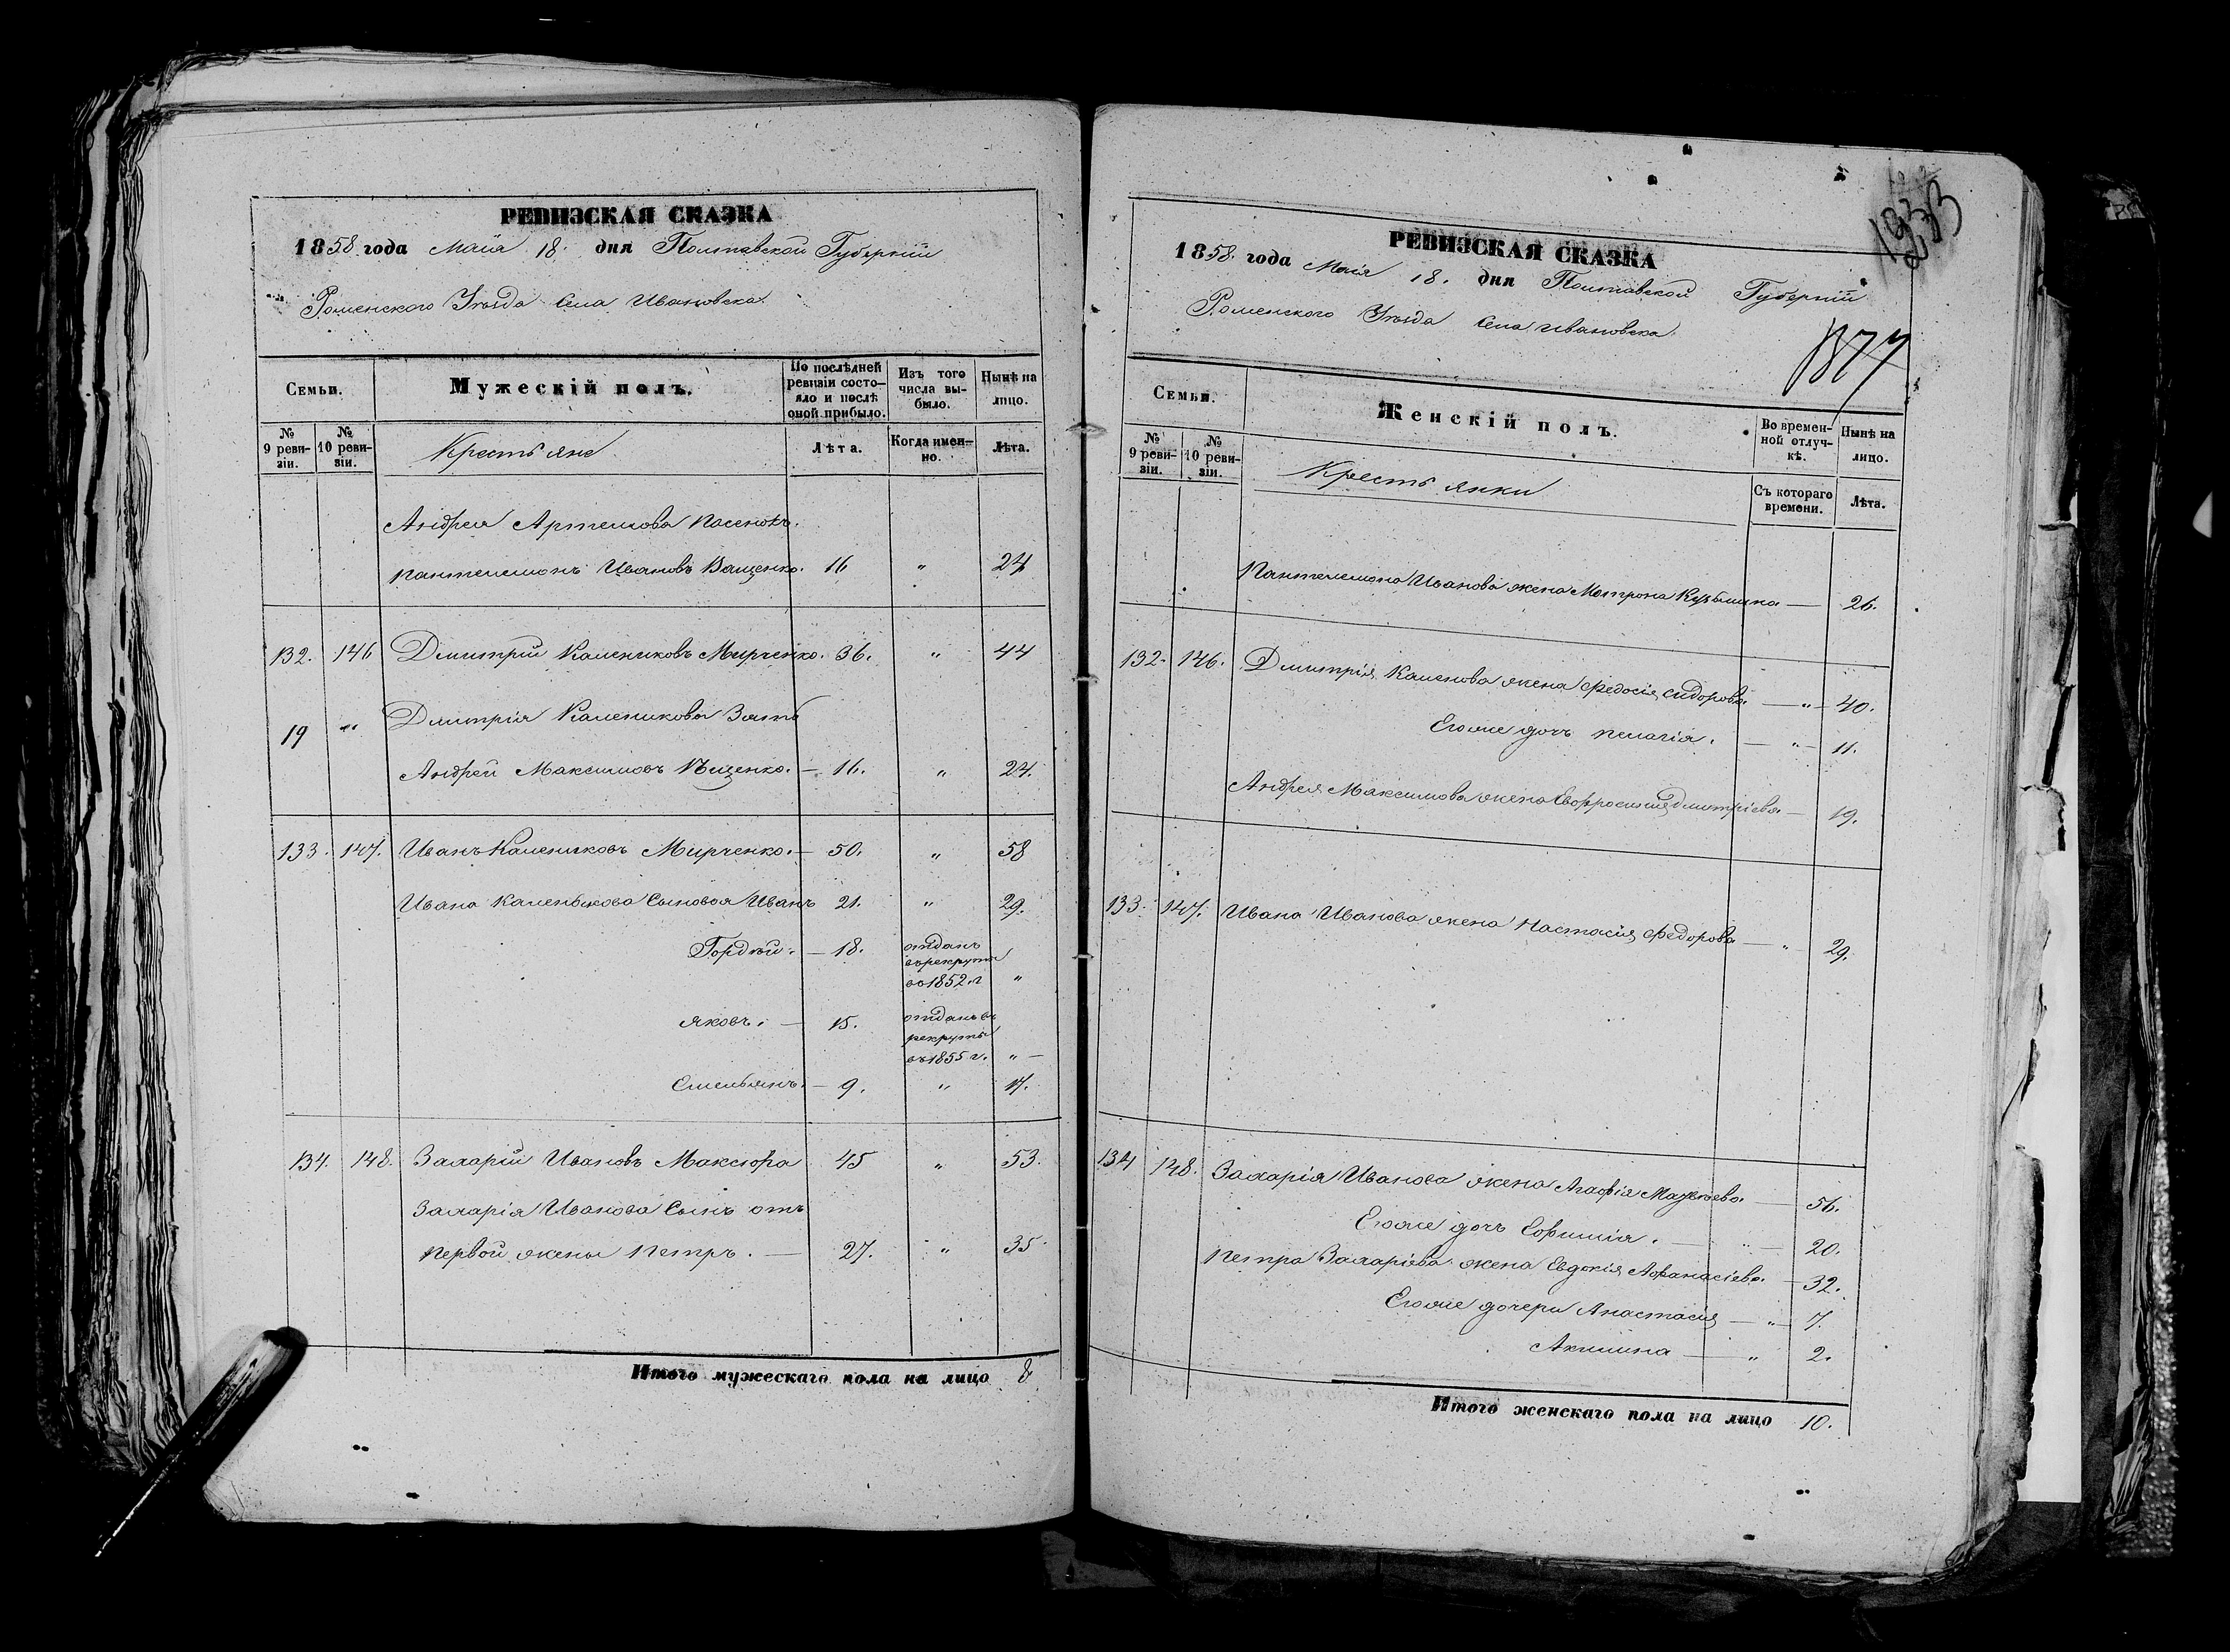 РЕВИЗСКАЯ СКАЗКА
1858 года Маія 18. дня Полтавской Губерніи
Роменского Уѣзда Села Ивановска.
Семьи.
Мужескій полъ.
По послѣдней ревизіи состояло и послѣ оной прибыло.
Изъ того числа выбыло.
Нынѣ на лицо.
№ 9 ревизіи.
№ 10 ревизіи.
Крестьяне
Лѣта.
Когда именно.
Лѣта.
Андрея Артемова пасенокъ.
Пантелемонъ Ивановъ Ващенко. 16 " 24
132. 146 Дмитрій Калениковъ Мирченко. 36. " 44
19 " Дмитрія Каленикова Зять
Андрей Максимовъ — 16. " 24.
133. 147. Иванъ Калениковъ Мирченко. — 50. " 58
Ивана Каленикова Сыновья Иванъ 21. " 29.
Гордѣй. — 18. отданъ
въ рекруты
въ 1852 г "
Яковъ. — 15. отданъ въ
рекруты
въ 1855 г. " —
Емельянъ. — 9. " 17.
134. 148. Захарій Ивановъ Максюра 45 " 53.
Захарія Иванова Сынъ отъ
первой жены Петръ. — 27. " 35
Итого мужескаго пола на лицо 8
РЕВИЗСКАЯ СКАЗКА
1858. года Маія 18. дня Полтавской Губерніи
Роменского Уѣзда Села Ивановска.
Семьи.
Женскій полъ.
Во временной отлучкѣ.
Нынѣ на лицо.
№ 9 ревизіи.
№ 10 ревизіи.
Крестьянки
Съ котораго времени.
Лѣта.
Пантелемона Иванова жена Матрона Кузьмина — 26.
132. 146. Дмитрія Каленова жена Федосія Сидорова — " — 40.
Егоже дочь Пелагія. — " — 11.
Андрея Максимова жена Евфросинія Дмитріева — 19.
133. 147. Ивана Иванова жена Настасія Федорова — " 29.
134 148. Захарія Иванова жена Агафія — 56.
Егоже дочь Ефимія. — " — 20.
Петра Захаріева жена Евдокія Афанасіева. — 32.
Егоже дочери Анастасія — " — 7.
Акилина — " 2.
Итого женскаго пола на лицо 10.